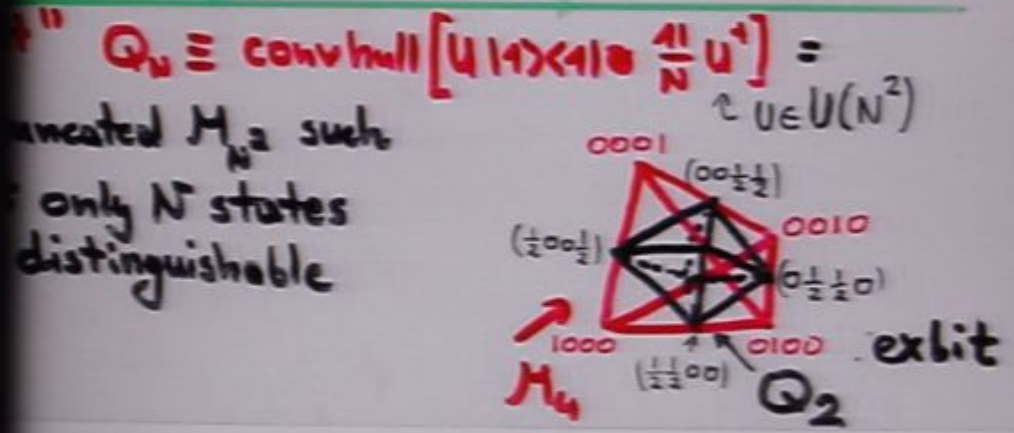 Q_N ≡ convhull [U |1><1| ⊗ 1/N U†] =
↑ U∈U(N²)
such
only N states
distinguishable
0001
(00½½)
0010
(½00½)
(0½½0)
1000
0100
exbit
(½½00)
M₄
Q₂